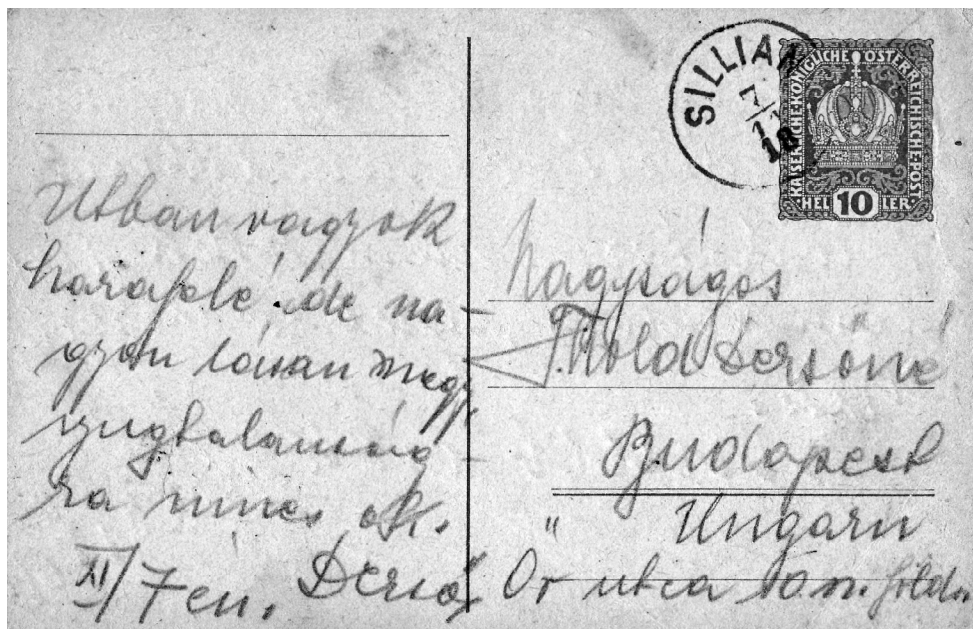 Utban vagyok
hazafelé, de na-
gyon lassan megy,
nyugtalanság-
ra nincs ok.
XI/7 en. Dezső
SILLIAN
7/11
18
KAISERLICHE·KÖNIGLICHE·ÖSTERREICHISCHE·POST
HELLER 10
Nagyságos
Dezsőné
Budapest
Ungarn
Őr utca 10 n. földsz.